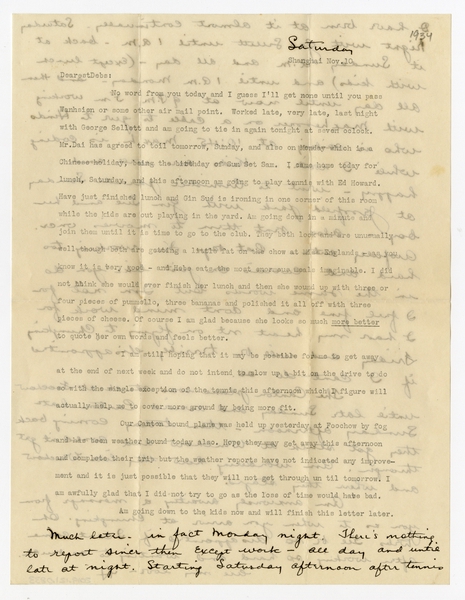 1934
Saturday
Shanghai Nov. 10
DearestDebs:
No word from you today and I guess I'll get none until you pass
Wanhsien or some other air mail point. Worked late, very late, last night
with George Sellett and am going to tie in again tontight at seven oclock.
Mr.Dai has agreed to toil tomorrow, Sunday, and also on Monday which is a
Chinese holiday, being the birthday of Sun Yat Sen. I came home today for
lunch, Saturday, and this afternoon am going to play tennis with Ed Howard.
Have just finished lunch and Gin Sud is ironing in one corner of this room
while the kids are out playing in the yard. Am going down in a minute and
join them until it is time to go to the club. They both look and are unusually
well, though both are getting a little fat
know it is very good - and Hebe eats the most enormous meals imaginable. I did
not think she would ever finish her lunch and then she wound up with three or
four pieces of pummello, three bananas and polished it all off with three
pieces of cheese. Of course I am glad because she looks so much more better
to quote her own words and feels better.
I am still hoping that it may be possible for me to get away
at the end of next week and do not intend to slow up a bit on the drive to do
so with the single exception of the tennis this afternoon which I figure will
actually help me to cover more ground by being more fit.
Our Canton bound plane was held up yesterday at Foochow by fog
and has been weather bound today also. Hope they may get away this afternoon
and complete their trip but the weather reports have not indicated any improve-
ment and it is just possible that they will not get through un til tomorrow. I
am awfully glad that I did not try to go as the loss of time would have bad.
Am going down to the kids now and will finish this letter later.
Much later. in fact Monday night. There's nothing
to report since then except work - all day and until
late at night. Starting Saturday afternoon after tennis